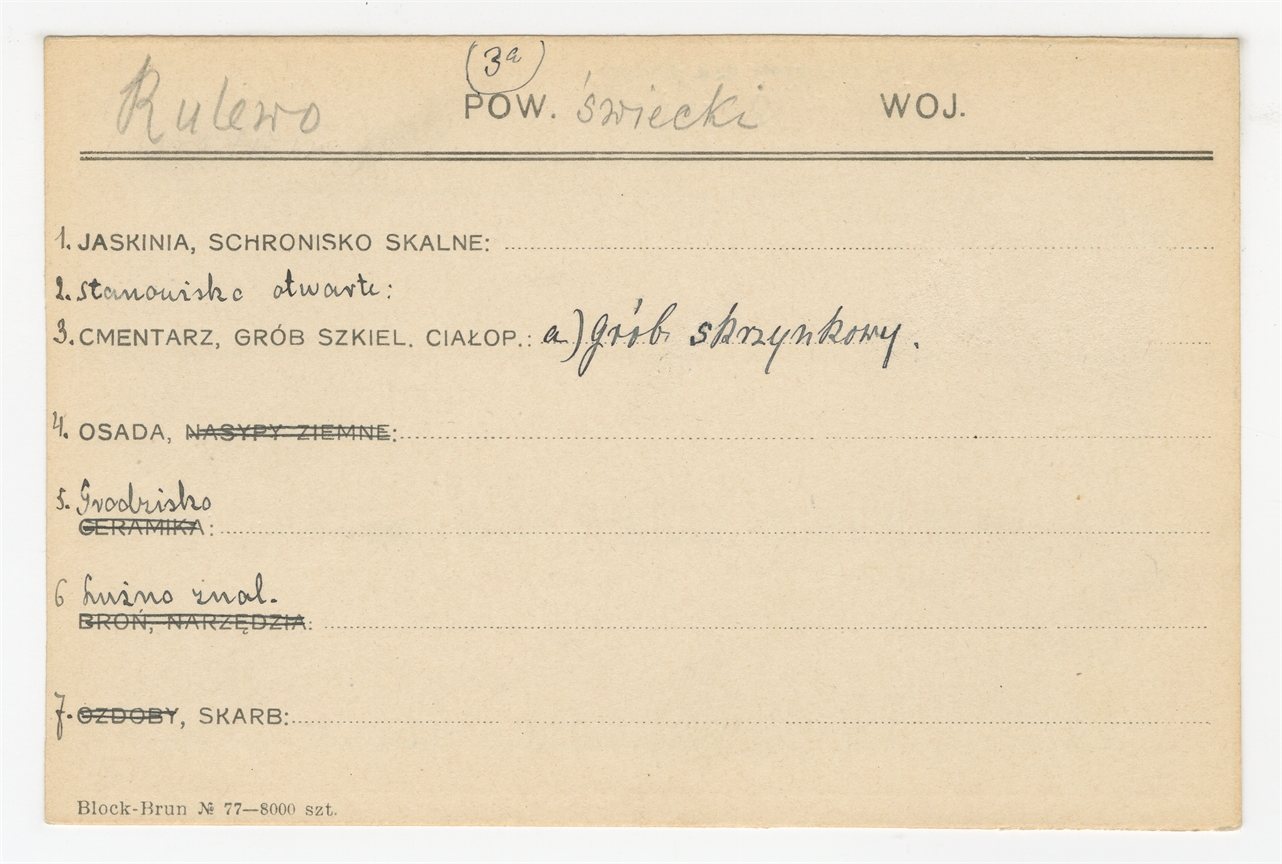 (3a)
Rulewo POW. świecki WOJ.
1. JASKINIA, SCHRONISKO SKALNE:
2. stanowisko otwarte:
3. CMENTARZ, GRÓB SZKIEL. CIAŁOP.: a) grób skrzynkowy.
4. OSADA, NASYPY ZIEMNE:
5. Grodzisko
CERAMIKA:
6 Luźno znal.
BROŃ, NARZĘDZIA:
7. OZDOBY, SKARB:
Block-Brun № 77—8000 szt.